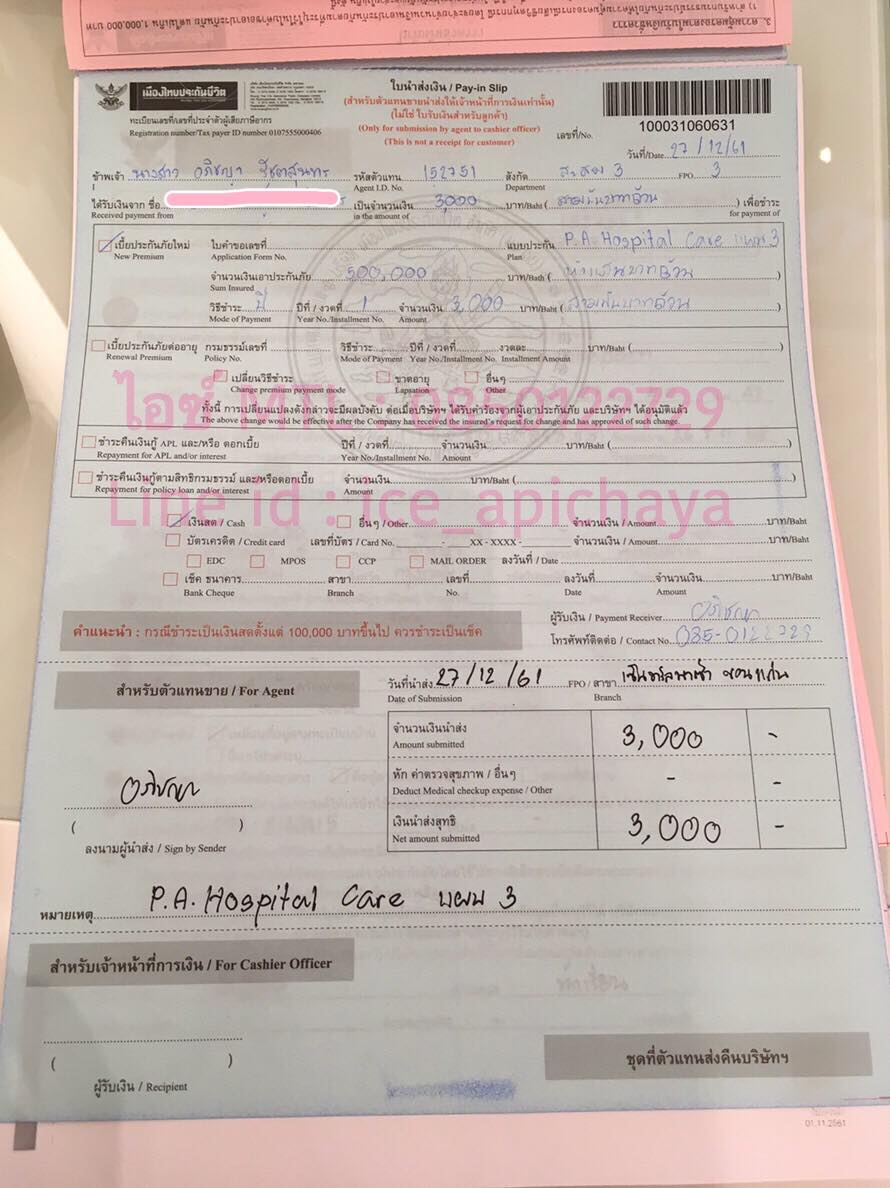 เมืองไทยประกันชีวิต
ใบนำส่งเงิน / Pay-in Slip
(สำหรับตัวแทนขายนำส่งให้เจ้าหน้าที่การเงินเท่านั้น)
(ไม่ใช่ ใบรับเงินสำหรับลูกค้า)
(Only for submission by agent to cashier officer)
(This is not a receipt for customer)
ทะเบียนเลขที่/เลขที่ประจำตัวผู้เสียภาษีอากร
Registration number/Tax payer ID number 0107555000406
เลขที่/No. 100031060631
วันที่/Date 27/12/61
ข้าพเจ้า นางสาว อภิชญา รหัสตัวแทน 152751 สังกัด 3 FPO 3
I Agent I.D. No. Department
ได้รับเงินจาก ชื่อ เป็นจำนวนเงิน 3,000 บาท/Baht (สามพันบาทถ้วน) เพื่อชำระ
Received payment from in the amount of for payment of
เบี้ยประกันภัยใหม่ ใบคำขอเลขที่ แบบประกัน P.A. Hospital Care แผน 3
New Premium Application Form No. Plan
จำนวนเงินเอาประกันภัย 500,000 บาท/Bath (ห้าแสนบาทถ้วน)
Sum Insured
วิธีชำระ ปี ปีที่ / งวดที่ 1 จำนวนเงิน 3,000 บาท/Baht (สามพันบาทถ้วน)
Mode of Payment Year No./Installment No. Amount
เบี้ยประกันภัยต่ออายุ กรมธรรม์เลขที่ วิธีชำระ ปีที่ / งวดที่ งวดละ บาท/Baht ( )
Renewal Premium Policy No. Mode of Payment Year No./Installment No. Installment Amount
เปลี่ยนวิธีชำระ ขาดอายุ อื่นๆ
Change premium payment mode Lapsation Other
ไอซ์ MTL : 0850122729
ทั้งนี้ การเปลี่ยนแปลงดังกล่าวจะมีผลบังคับ ต่อเมื่อบริษัทฯ ได้รับคำร้องจากผู้เอาประกันภัย และบริษัทฯ ได้อนุมัติแล้ว
The above change would be effective after the Company has received the insured's request for change and has approved of such change.
ชำระคืนเงินกู้ APL และ/หรือ ดอกเบี้ย ปีที่ / งวดที่ จำนวนเงิน บาท/Baht ( )
Repayment for APL and/or interest Year No./Installment No. Amount
ชำระคืนเงินกู้ตามสิทธิกรมธรรม์ และ/หรือดอกเบี้ย จำนวนเงิน บาท/Baht ( )
Repayment for policy loan and/or interest Amount
Line id : ice_apichaya
เงินสด / Cash อื่นๆ / Other จำนวนเงิน / Amount บาท/Baht
บัตรเครดิต / Credit card เลขที่บัตร / Card No. - XX - XXXX - จำนวนเงิน / Amount บาท/Baht
EDC MPOS CCP MAIL ORDER ลงวันที่ / Date
เช็ค ธนาคาร สาขา เลขที่ ลงวันที่ จำนวนเงิน บาท/Baht
Bank Cheque Branch No. Date Amount
ผู้รับเงิน / Payment Receiver อภิชญา
คำแนะนำ : กรณีชำระเป็นเงินสดตั้งแต่ 100,000 บาทขึ้นไป ควรชำระเป็นเช็ค
โทรศัพท์ติดต่อ / Contact No. 085-0122729
สำหรับตัวแทนขาย / For Agent
วันที่นำส่ง 27/12/61 FPO / สาขา เซ็นทรัลพลาซ่า ขอนแก่น
Date of Submission Branch
จำนวนเงินนำส่ง 3,000 -
Amount submitted
หัก ค่าตรวจสุขภาพ / อื่นๆ - -
Deduct Medical checkup expense / Other
เงินนำส่งสุทธิ 3,000 -
Net amount submitted
อภิชญา
( )
ลงนามผู้นำส่ง / Sign by Sender
หมายเหตุ P.A. Hospital Care แผน 3
สำหรับเจ้าหน้าที่การเงิน / For Cashier Officer
( )
ผู้รับเงิน / Recipient
ชุดที่ตัวแทนส่งคืนบริษัทฯ
01.11.2561